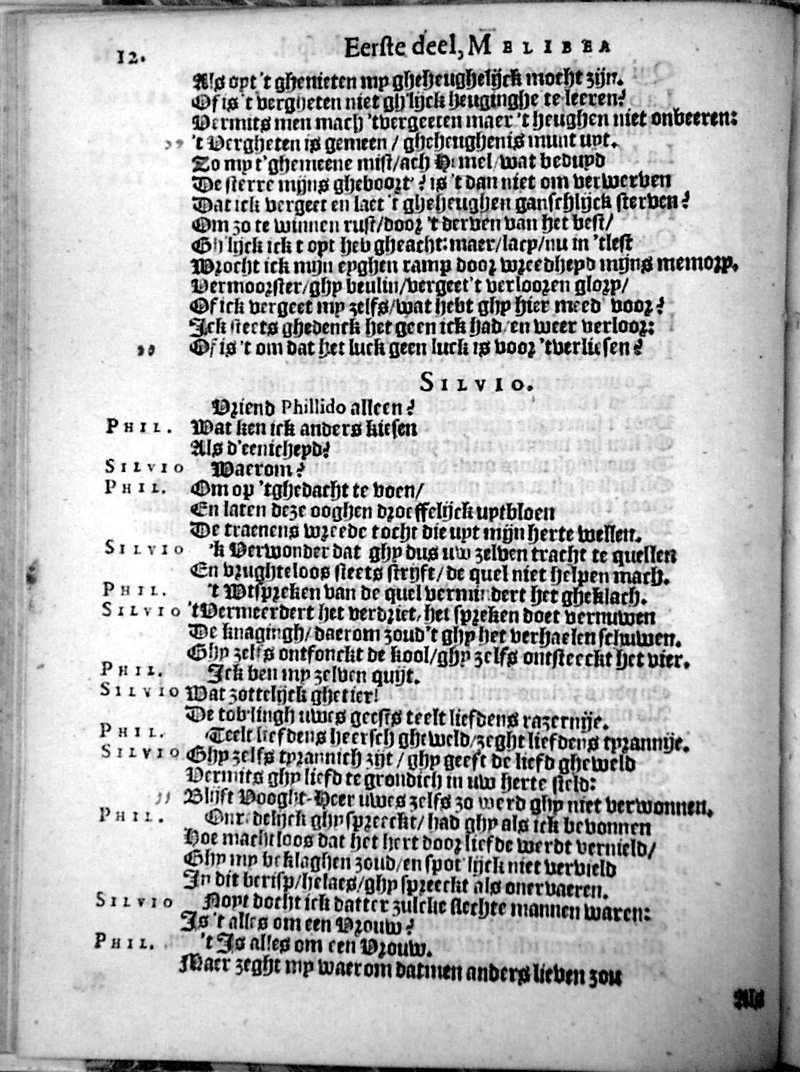 12. Eerste deel, MELIBEA
Als opt 't ghenieten my gheheughelijck mocht zijn.
Of is 't vergheten niet gh'lijck heuginghe te leeren?
Vermits men mach 'tvergeeten maer 't heughen niet onbeeren:
,, 't Vergheten is gemeen / gheheughenis munt uyt.
Zo my t'ghemeene mist/ach Hemel/wat beduyd
De sterre mijns gheboort'? is 't dan niet om verwerven
Dat ick vergeet en laet 't gheheughen ganschlijck sterven?
Om zo te winnen rust/door 't derven van het best/
Gh'lijck ick t opt heb gheacht: maer/lacy/nu in 'tlest
Wrocht ick mijn eyghen ramp door wreedheyd mijns memory.
Vermoorster/ghy beulin/vergeet't verlooren glory/
Of ick vergeet my zelfs/wat hebt ghy hier meed' voor?
Ick steets ghedenck het geen ick had/en weer verloor:
,, Of is 't om dat het luck geen luck is voor 'tverliesen?
SILVIO.
Vriend Phillido alleen?
PHIL. Wat ken ick anders kiesen
Als d'eenicheyd?
SILVIO Waerom?
PHIL. Om op 'tghedacht te voen/
En laten deze ooghen droeffelijck uytbloen
De traenens wreede tocht die uyt mijn herte wellen.
SILVIO 'k Verwonder dat ghy dus uw zelven tracht te quellen
En vrughteloos steets strijft/de quel niet helpen mach.
PHIL. 't Wtspreken van de quel vermindert het gheklach.
SILVIO 'tVermeerdert het verdriet, het spreken doet vernuwen
De knagingh/daerom zoud't ghy het verhaelen schuwen.
Ghy zelfs ontfonckt de kool/ghy zelfs ontsteeckt het vier.
PHIL. Ick ben my zelven quijt.
SILVIO Wat zottelijck ghetier!
De tob'lingh uwes geests teelt liefdens razernije.
PHIL. Teelt liefdens heersch gheweld/zeght liefdens tyrannije.
SILVIO Ghy zelfs tyrannich zijt / ghy geeft de liefd gheweld
Vermits ghy liefd te grondich in uw herte steld:
,, Blijft Vooght-Heer uwes zelfs zo werd ghy niet verwonnen.
PHIL. Onredelijck ghy spreeckt/ had ghy als ick bevonnen
Hoe machtloos dat het hert door liefde werdt vernield/
Ghy my beklaghen zoud/en spot'lijck niet vervield
In dit berisp/helaes/ghy spreeckt als onervaeren.
SILVIO Noyt docht ick datter zulcke slechte mannen waren:
Is 't alles om een Vrouw?
PHIL. 't Is alles om een Vrouw.
Maer zeght my waerom datmen anders lieven zou
Als